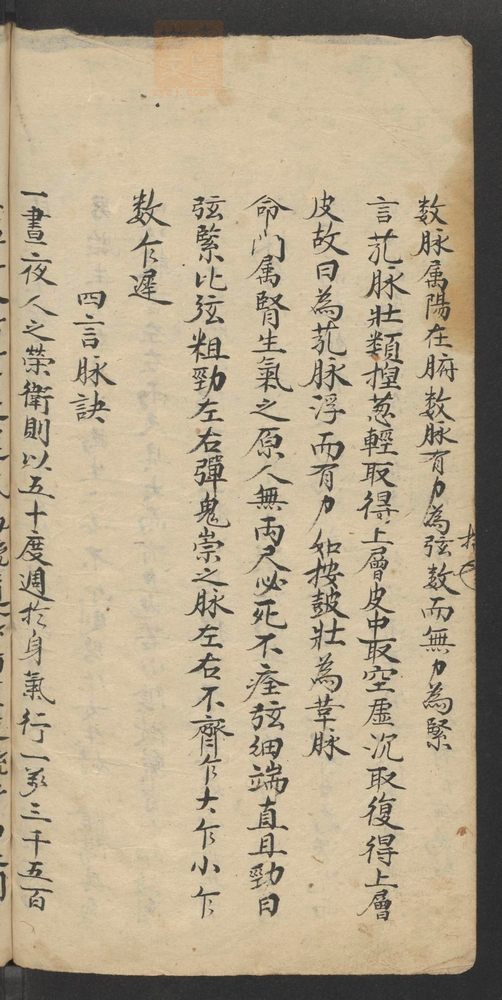 数脉属陽在腑数脉有力為弦数而無力為緊
言芤脉壯類揑葱輕取得上層皮中取空虛沉取復得上層
皮故曰為芤脉浮而有力如按鼓壯為革脉
命门属腎生氣之原人無两尺必死不痊弦細端直且勁曰
弦緊比弦粗勁左右彈鬼祟之脉左右不齊乍大乍小乍
数乍遲
四言脉訣
一晝夜人之榮衛則以五十度週於身氣行一萬三千五百